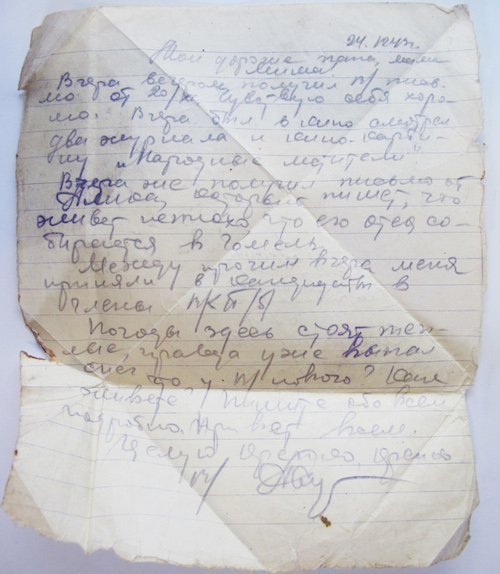 24. XI 43 г.
Мои дорогие папа, мама
Вчера вечером получил в/ пись-
мо от 20/XI. Чувствую себя хоро-
шо. Вчера был в кино смотрел
два журнала и кино-карти-
ну „Народные мстители"
Вчера же получил письмо от
который пишет, что
живет неплохо что его отец со-
бирается в Гомель.
Между прочим вчера меня
приняли в кандидаты в
члены ВКП/б/
Погоды здесь стоят теп-
лые, правда уже выпал
снег. Что у в/ нового? Как
живете? Пишите обо всем
подробно. Привет всем.
Целую крепко, крепко